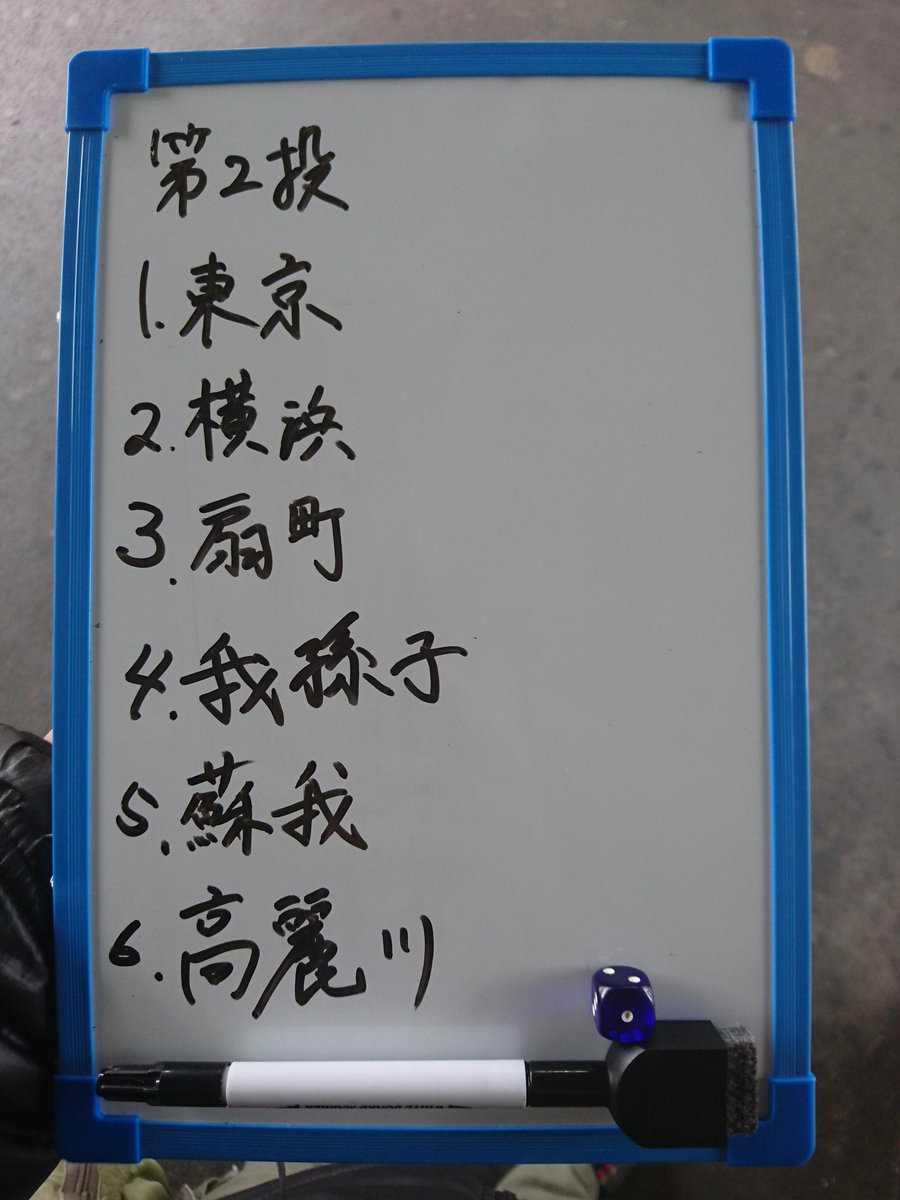 第2投
1.東京
2.横浜
3.扇町
4.我孫子
5.蘇我
6.高麗川
WHITE BOARD MARKER